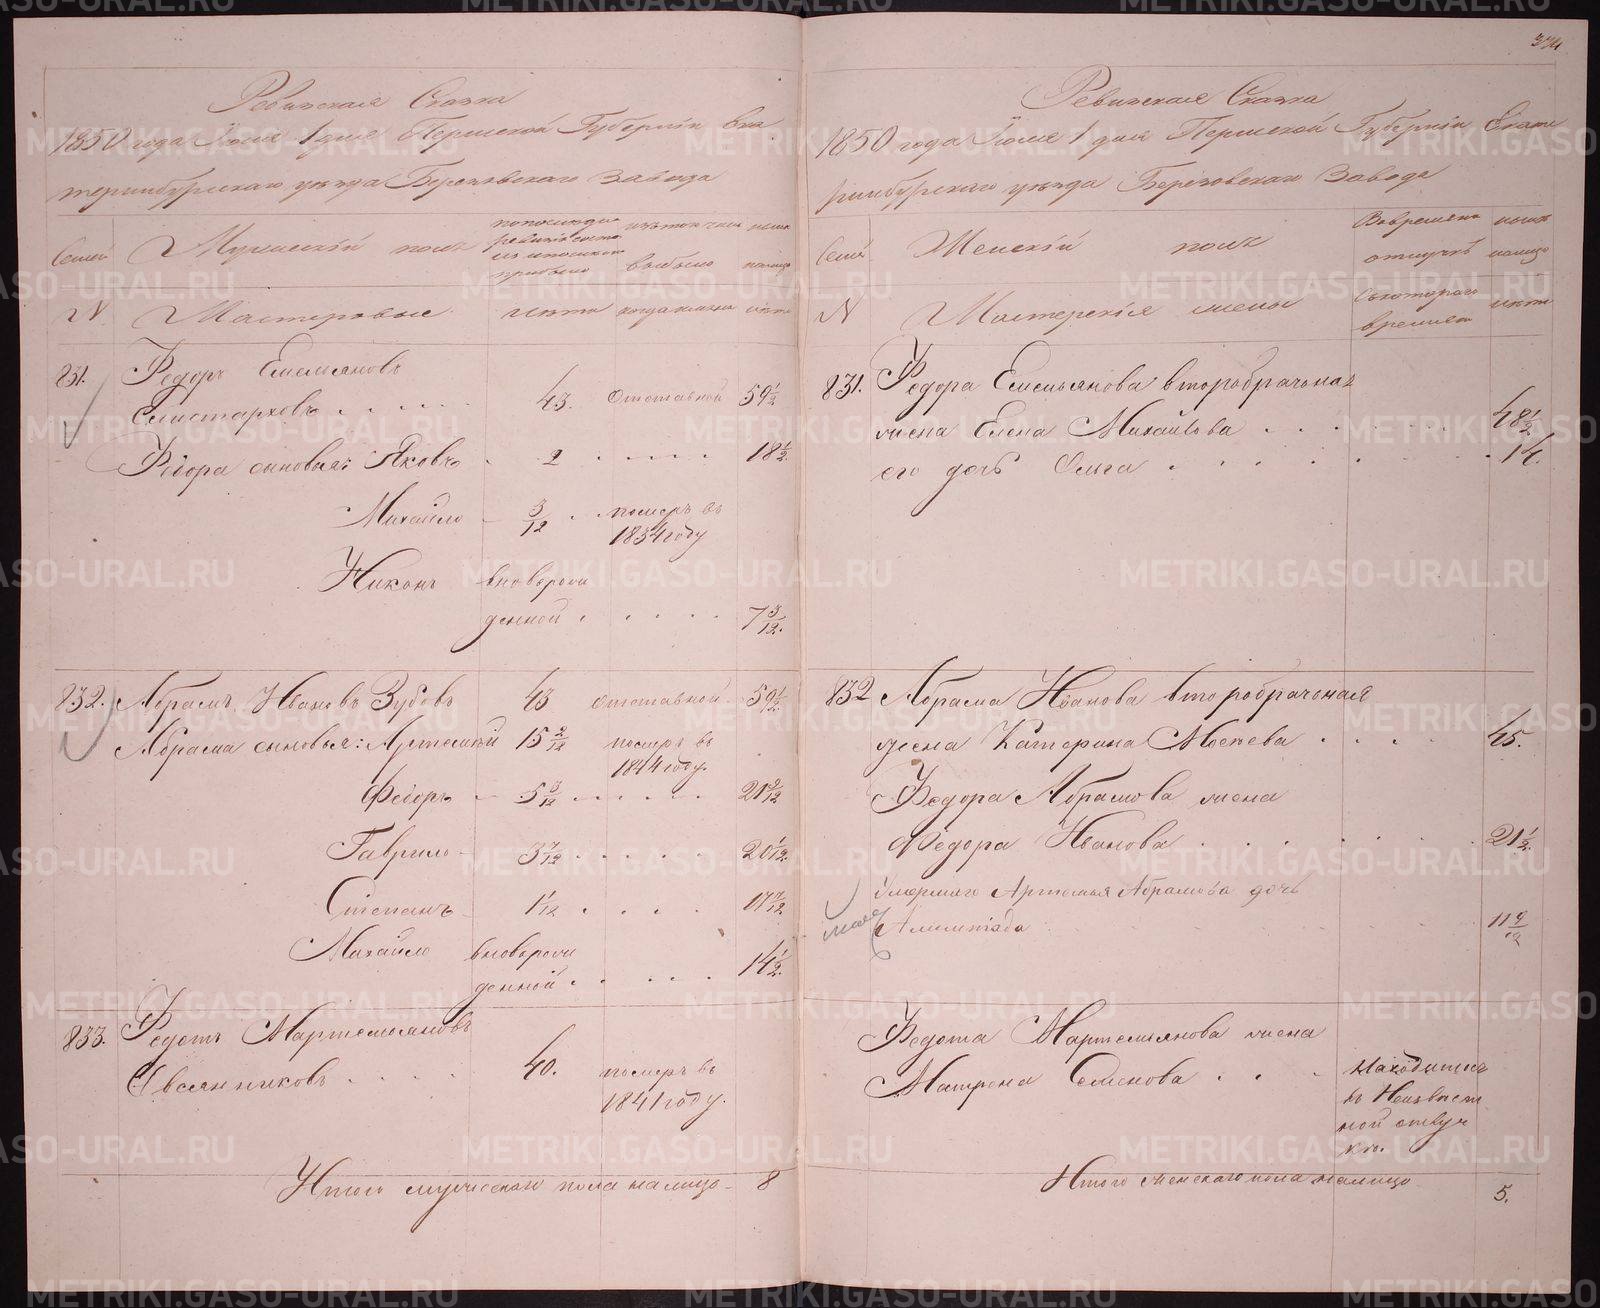 Ревизская Сказка
1850 года Июля 1 дня Пермской Губернiи Ека
теринбургскаго уѣзда Березовскаго Завода
Семей
Мужескiй полъ
по последней
ревизiи состо
прибыло
изъ того числа
выбыло
нынѣ
налицо
N
Мастеровые
лѣта
когда именно
лѣта
831.
Федоръ Емельяновъ
Селистарховъ
43.
Отставной
59 1/2
Федора сыновья: Яковъ
2
18 1/2.
Михайло
3/12
померъ въ
1834 году
Никонъ
вноворож
денной
7 3/12.
832.
Абрамъ Ивановъ Зубовъ
43
Отставной
59 1/2.
Абрама сыновья: Артемiй
15 2/12
померъ въ
1844 году.
Федоръ
5 3/12
Гаврило
3 7/12
20 1/12.
Степанъ
1/12
17 7/12
Михайло
вноворож
денной
14 1/2.
833.
Федотъ Мартемьяновъ
Овсянниковъ
40.
померъ въ
1841 году.
Итого мужескаго пола налицо
8
Ревизская Сказка
1850 года Июля 1 дня Пермской Губернiи Екате
ринбургскаго уѣзда Березовскаго Завода
Семей
Женскiй полъ
Вовременной
отлучкѣ
нынѣ
налицо
N
Мастерскiя жены
Съкотораго
времени
лѣта
831.
Федора Емельянова второбрачная
жена Елена Михайлова
48 1/2
его дочь Ольга
14.
832
Абрама Иванова второбрачная
жена Катерина Мосѣева
45.
Федора Абрамова жена
Федора Иванова
21 1/2.
Умершаго Артемья Абрамова дочь
Алимпiада
11 9/12
Федота Мартемьянова жена
Матрена Семенова
Находится
въ Неизвѣст
ной отлуч
кѣ.
Итого женскаго пола налицо
5.
METRIKI.GASO-URAL.RU